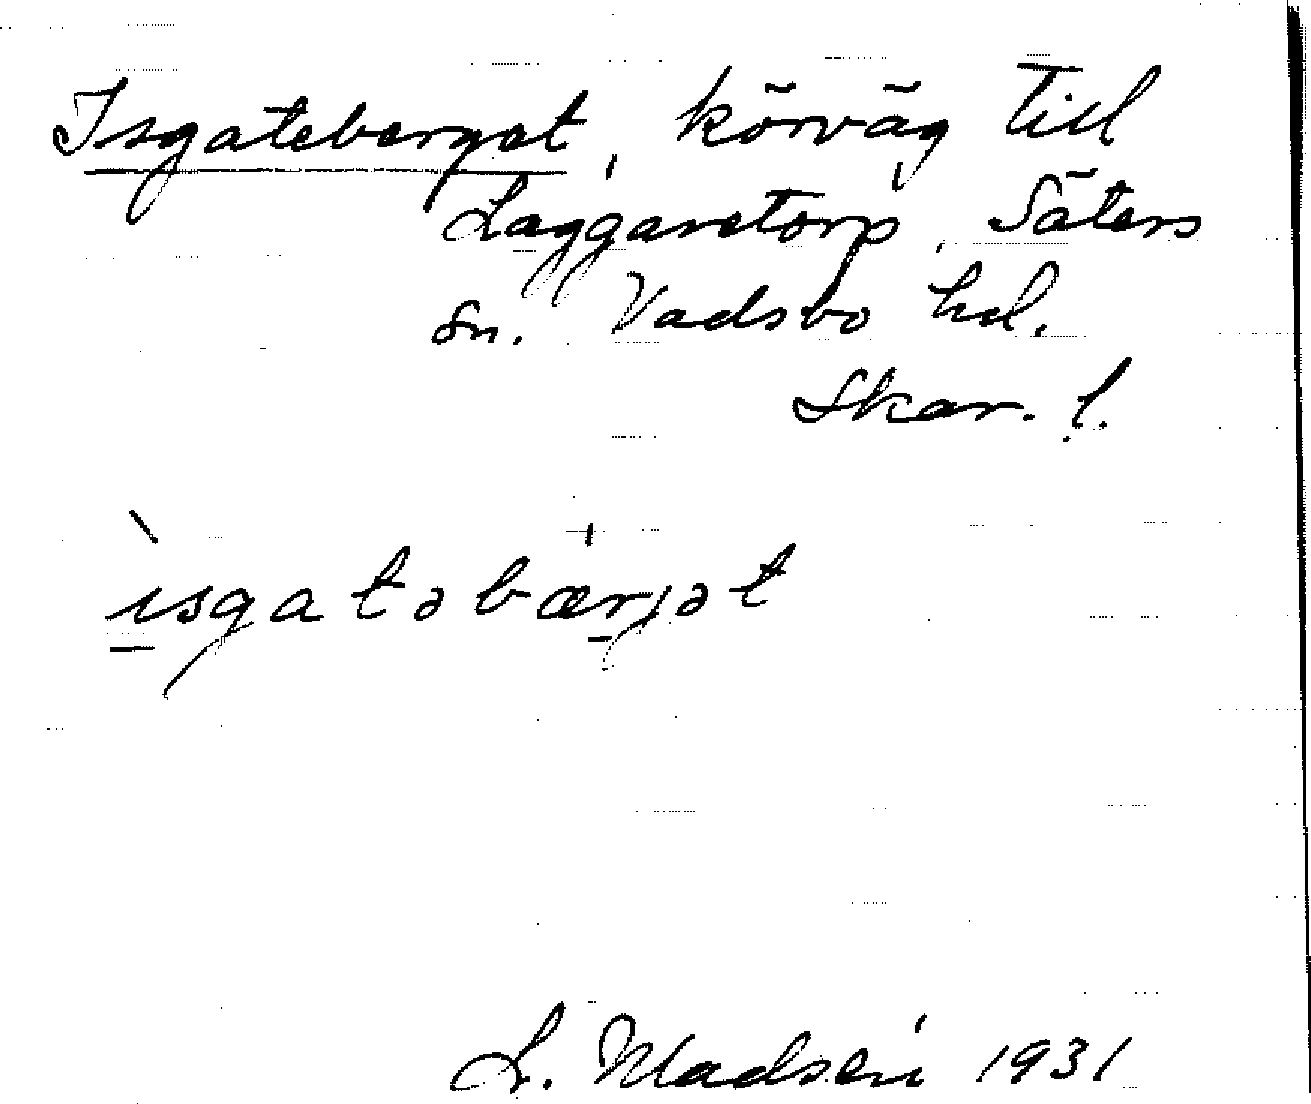 Isgateberget, körväg till
Laggaretorp, Säters
sn. Vadsbo hd.
Skar. l.
ìsgatəbærjət
L. Madsén 1931